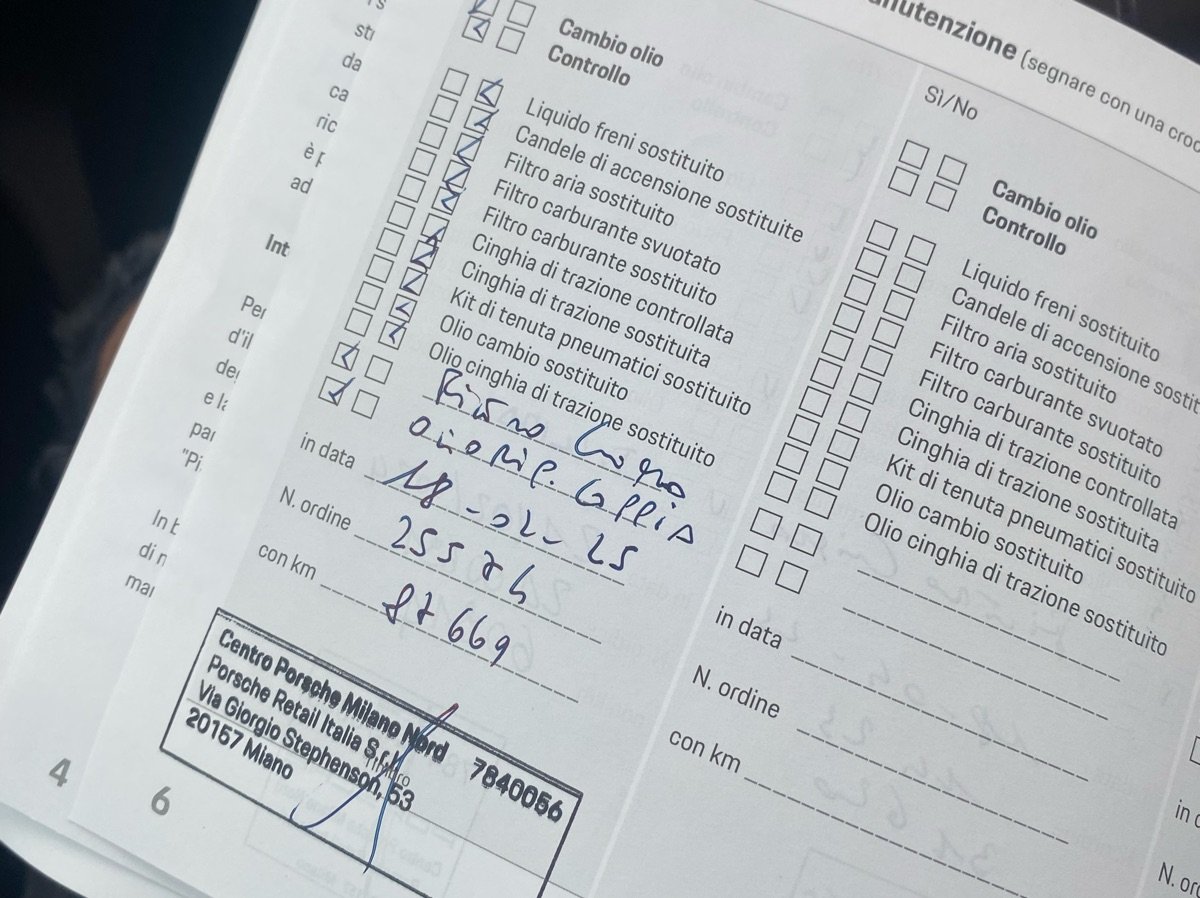 anutenzione (segnare con una croc
Sì/No
Cambio olio
Controllo
Liquido freni sostituito
Candele di accensione sostituite
Filtro aria sostituito
Filtro carburante svuotato
Filtro carburante sostituito
Cinghia di trazione controllata
Cinghia di trazione sostituita
Kit di tenuta pneumatici sostituito
Olio cambio sostituito
Olio cinghia di trazione sostituito
in data 18-02-25
N. ordine
con km 87669
Centro Porsche Milano Nord 7840056
Porsche Retail Italia S.r.l.
Via Giorgio Stephenson, 53
20157 Miano
6
Cambio olio
Controllo
Liquido freni sostituito
Candele di accensione sostit
Filtro aria sostituito
Filtro carburante svuotato
Filtro carburante sostituito
Cinghia di trazione controllata
Cinghia di trazione sostituita
Kit di tenuta pneumatici sostituito
Olio cambio sostituito
Olio cinghia di trazione sostituito
in data
N. ordine
con km
in d
N. ord
sti
da
ca
ric
è p
ad
Int
Per
d'il
deg
e la
par
"Pi
In b
di m
man
4